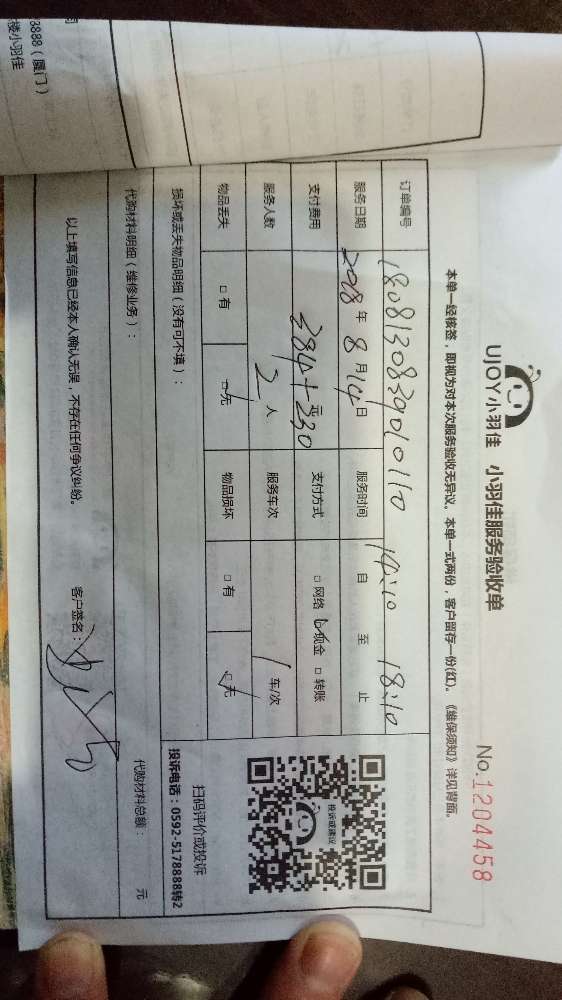 3888（厦门）
楼小羽佳
UJOY小羽佳 小羽佳服务验收单
No.1204458
本单一经核签，即视为对本次服务验收无异议。本单一式两份，客户留存一份(红)。《维保须知》详见背面。
订单编号 18081308290 10110
服务日期 2018年8月14日 服务时间 14:10 自 至 18:10 止
支付费用 384+230 元 支付方式 □网络 ☑现金 □转账
服务人数 2 人 服务车次 1 车/次
物品丢失 □有 ☑无 物品损坏 □有 ☑无
损坏或丢失物品明细（没有可不填）：
投诉或建议
扫码评价或投诉
投诉电话：0592-5178888转2
代购材料明细（维修业务）： 代购材料总额： 元
以上填写信息已经本人确认无误，不存在任何争议纠纷。 客户签名：